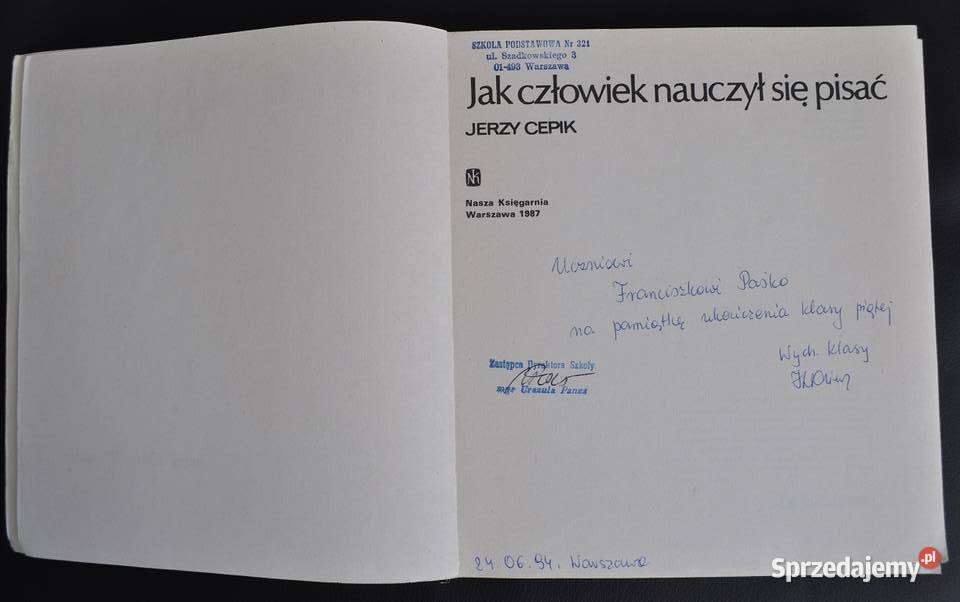 SZKOŁA PODSTAWOWA Nr 321
ul. Szadkowskiego 3
01-493 Warszawa
Jak człowiek nauczył się pisać
JERZY CEPIK
NK
Nasza Księgarnia
Warszawa 1987
Uczniowi
Franciszkowi Paśko
na pamiątkę ukończenia klasy piątej
Wych. klasy
Zastępca Dyrektora Szkoły
mgr Urszula Panes
24 06.94. Warszawa
Sprzedajemy.pl